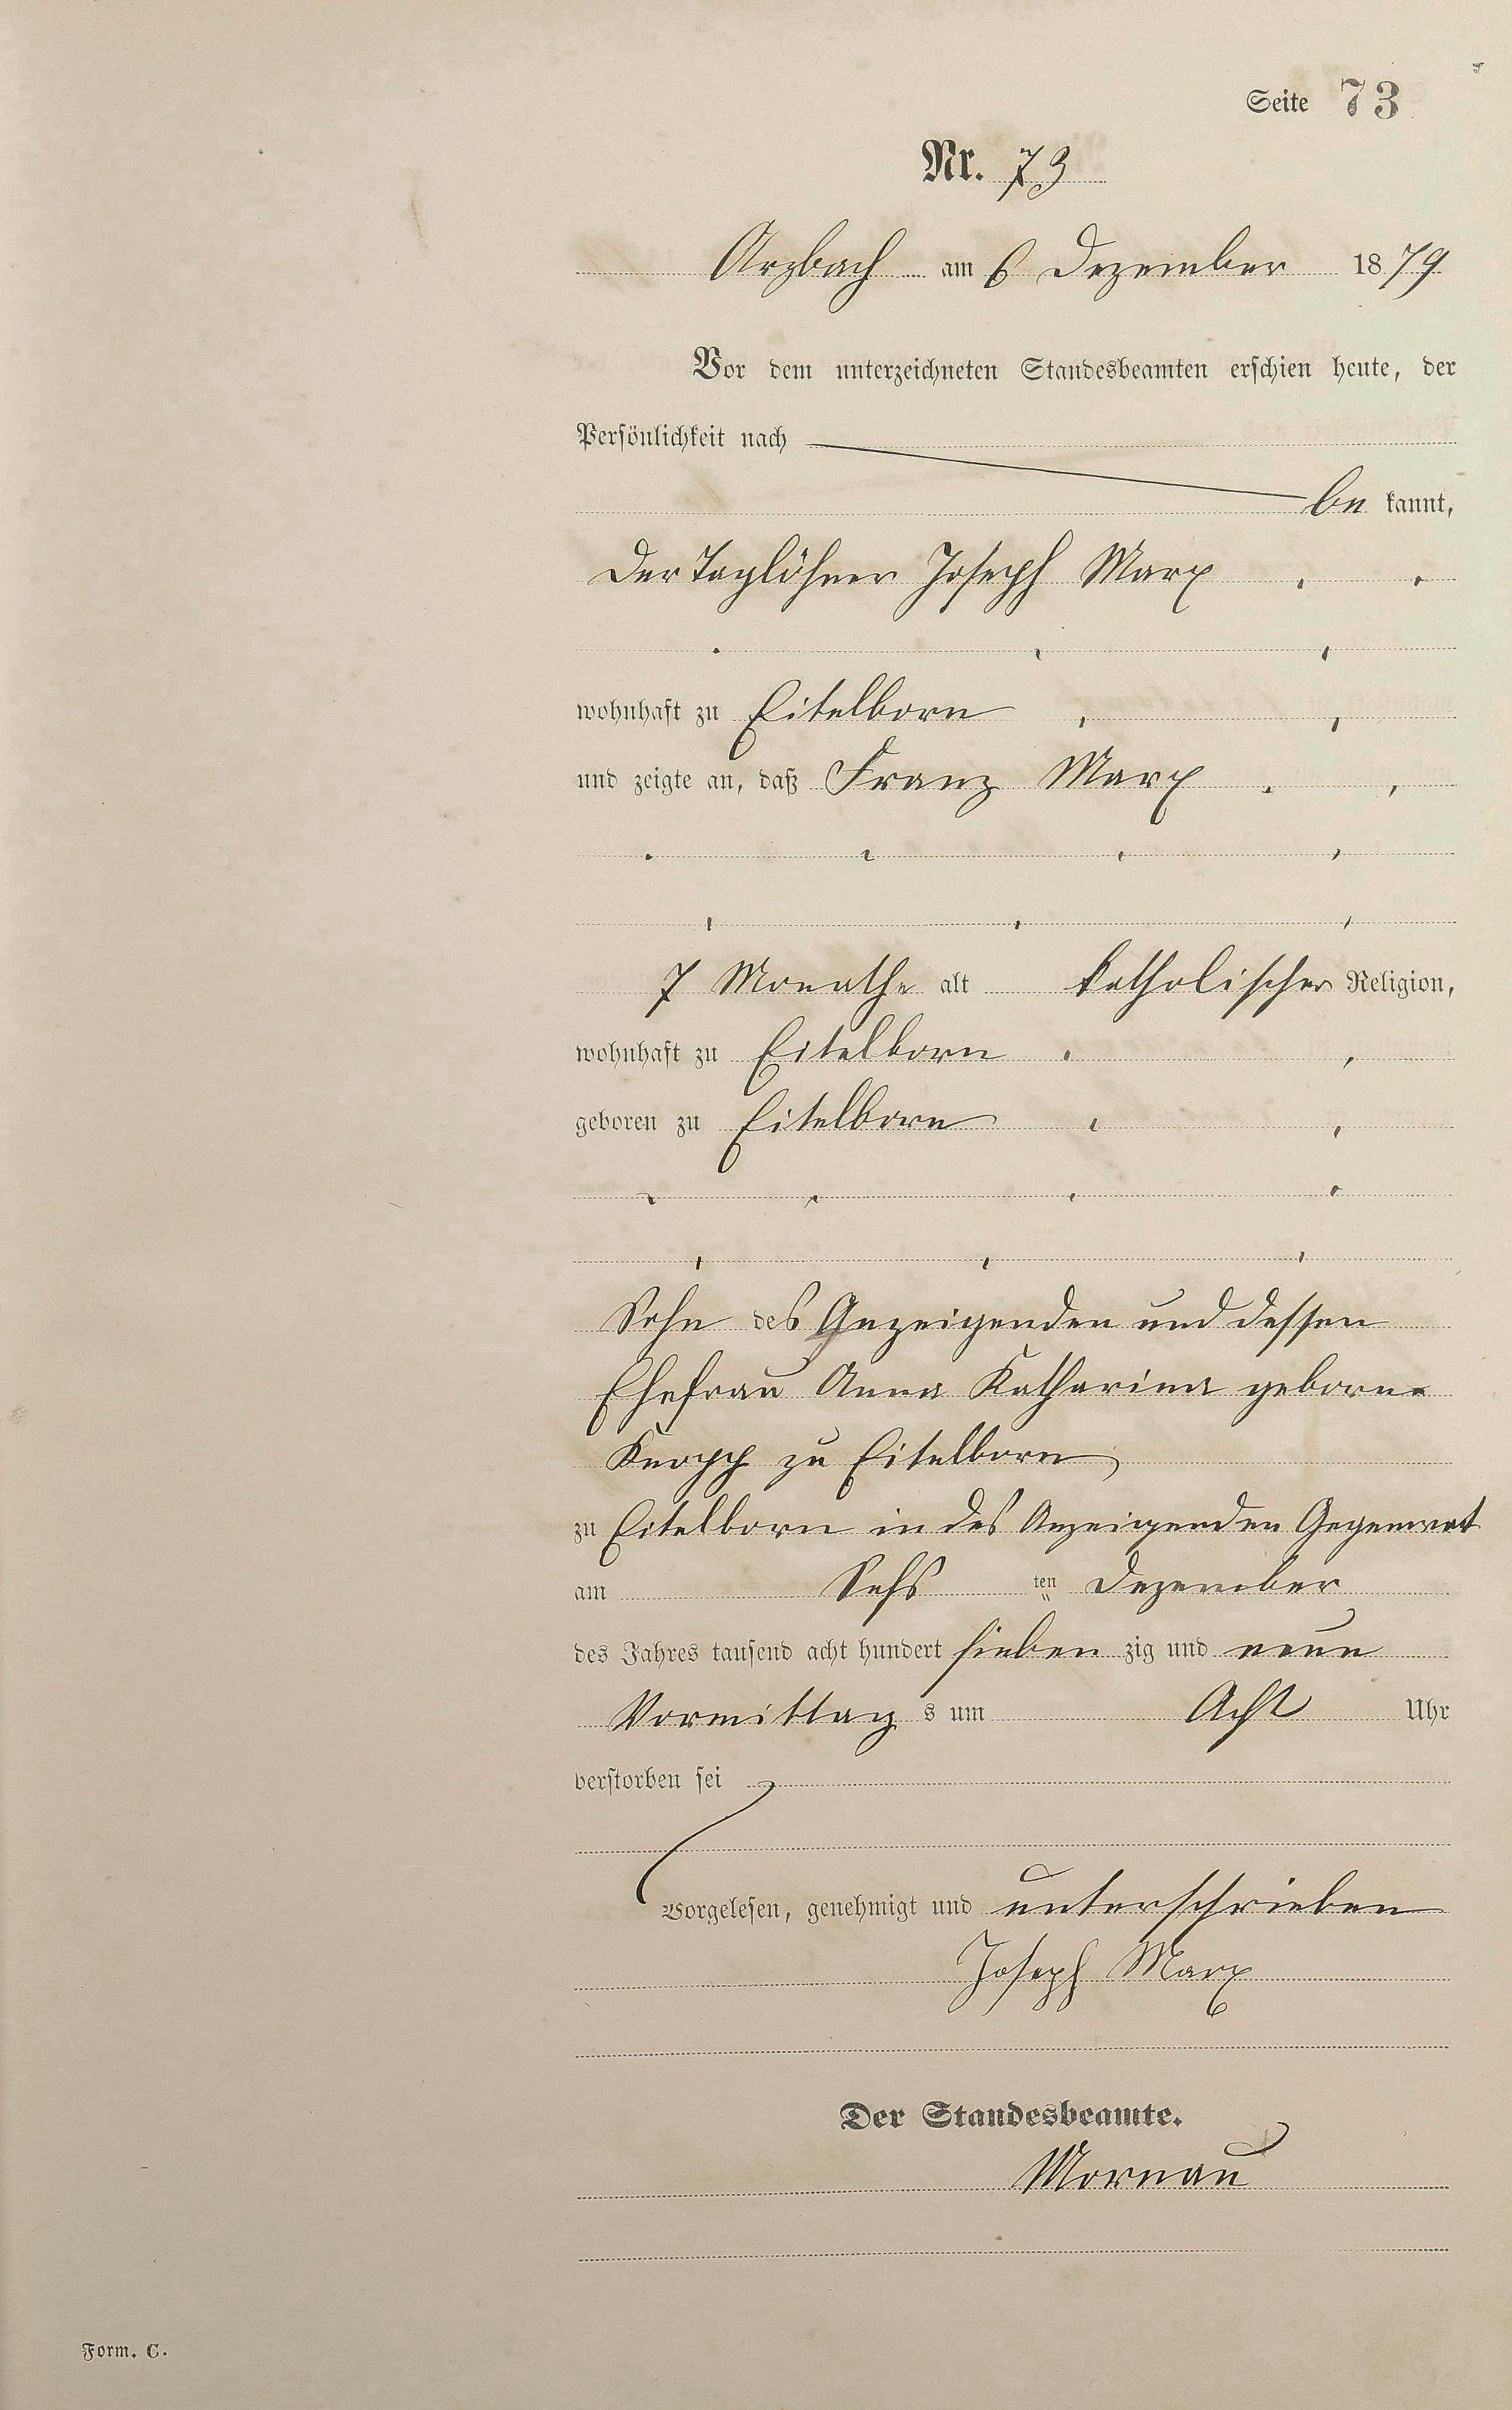 Seite 73
Nr. 73
Arzbach am 6 Dezember 1879
Vor dem unterzeichneten Standesbeamten erschien heute, der
Persönlichkeit nach
be kannt,
der Taglöhner Joseph Marx
wohnhaft zu Eitelborn
und zeigte an, daß Franz Marx
7 Monathe alt katholischer Religion,
wohnhaft zu Eitelborn
geboren zu Eitelborn
Sohn des Anzeigenden und dessen
Ehefrau Anna Katharina geborne
Knopp zu Eitelborn
zu Eitelborn in des Anzeigenden Gegenwat
am Sehs ten Dezember
des Jahres tausend acht hundert sieben zig und neun
Vormittag s um Acht Uhr
verstorben sei
Vorgelesen, genehmigt und unterschrieben
Joseph Marx
Der Standesbeamte.
Mornau
Form. C.